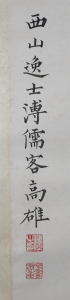 西山逸士溥儒客高雄